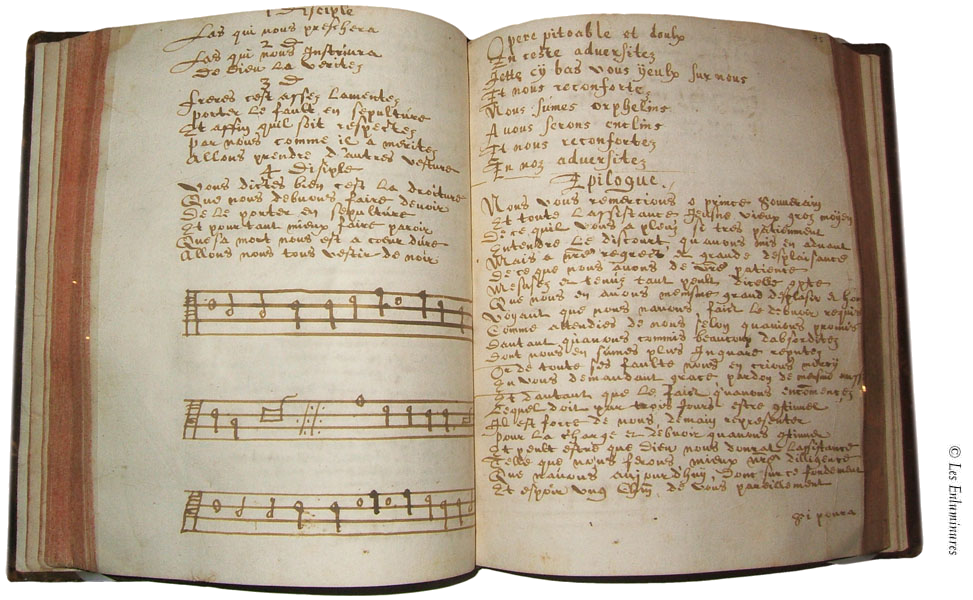 1 Disciple
Las qui nous preschera
2 D
Las qui nous Instruira
De Dieu La verites
3 D
Freres c'est assez Lamentez
porter Le fault en sepulture
Et affin qu'il soit respectez
par nous comme il a meritez
Allons prendre d'autres vesture
4 Disiple
Vous dictes bien c'est La droiture
Que nous debuons faire debuoir
De Le porter en sepulture
Et pour tant mieux faire paroir
Que sa mort nous est a cœur dure
Allons nous tous vestir de noir
O pere pitoable et doulx
En ceste adversitez
Jette cy bas vous yeulx sur nous
Et nous reconfortez
Nous sumes orphelins
A vous serons enclins
Et nous reconfortez
En noz adversitez
Epilogue.
Nous vous remercions o prince Souverain
Et toute L'assistance Jeusne vieux gros moyen
De ce qu'il vous a pleuz si tres patiemment
Entendre Le discourt qu'avons mis en advant
Mais a regret et grande desplaisance
De ce que nous avons de patience
Mesusez et tenuz tant peult
Que nous en avons mesme grand desplaisir
Voyant que nous n'avons fait Le debuoir requis
Comme attendies de nous selon qu'avions promis
D'autant qu'avons commis beaucoup d'absorditez
Dont nous en sumes plus reputez
Or de toute ses faulte nous en crions mercy
En vous demandant grace pardon de mesme
Et d'autant que Le fait qu'avons
Lequel doit par trois jours estre
Il est force de nous, demain representer
pour La charge et debuoir qu'avons
Et peult estre que Dieu nous donrat L'assistance
Telle que nous ferons mieux diligence
Que n'avons aujourd'huy, Dont sur ce fondement
Et espoir de vous pareillement
© Les Enluminures